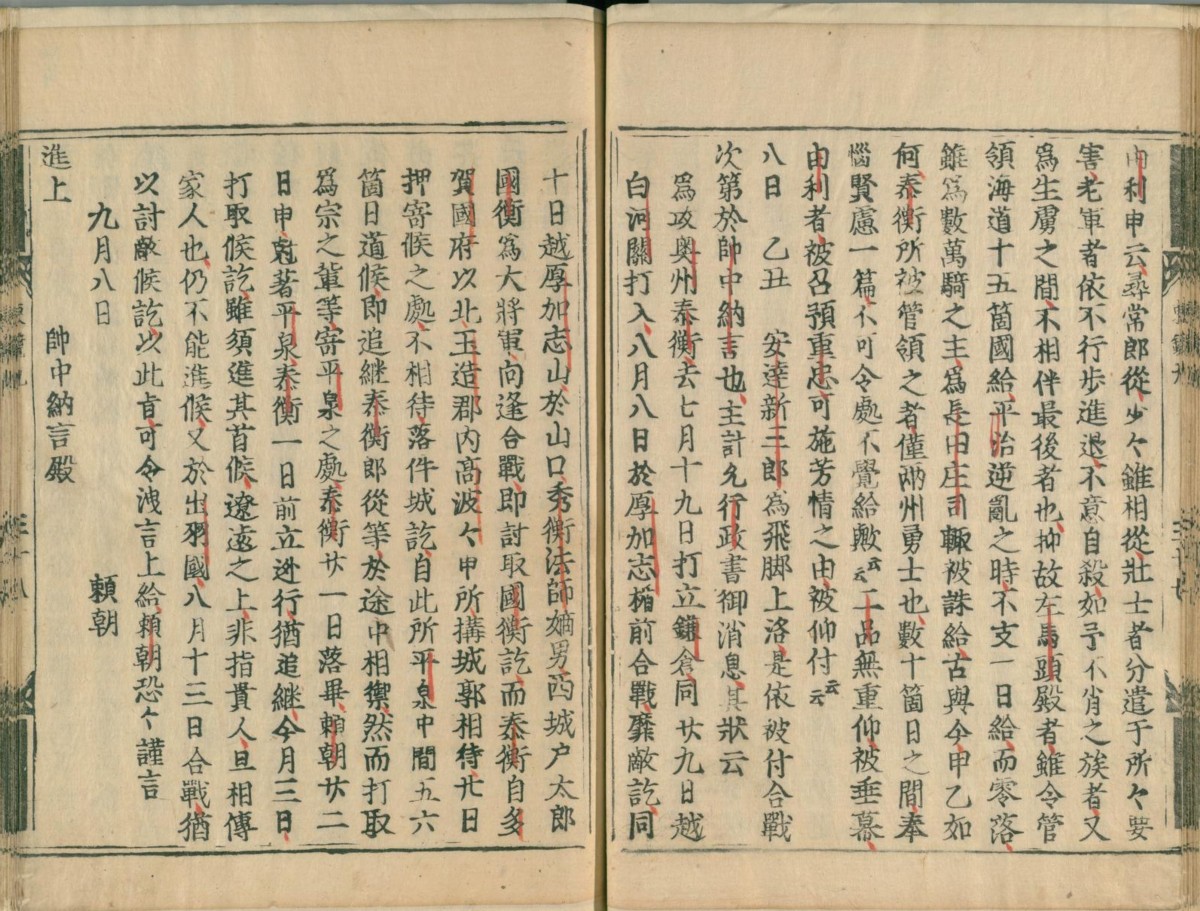 由利申云、尋常郎從、少々雖相從、壯士者分遣于所々要
害、老軍者依不行歩進退、不意自殺、如予不肖之族者、又
爲生虜之間、不相伴最後者也、抑故左馬頭殿者、雖令管
領海道十五箇國給、平治逆亂之時、不支一日給、而零落、
雖爲數萬騎之主、爲長田庄司輙被誅給、古與今、甲乙如
何、泰衡所被管領之者、僅兩州勇士也、數十箇日之間、奉
惱賢慮一篇、不可令處不覺給歟云云、二品無重仰、被垂幕、
由利者、被召預重忠、可施芳情之由、被仰付云云
八日 乙丑 安達新三郎爲飛脚上洛、是依被付合戰
次第於帥中納言也、主計允行政書御消息、其狀云
爲攻奥州泰衡、去七月十九日打立鎌倉、同廿九日越
白河關打入、八月八日於厚加志楯前合戰、靡敵訖、同
十日越厚加志山、於山口、秀衡法師嫡男西城戸太郎
國衡爲大將軍、向逢合戰、即討取國衡訖、而泰衡自多
賀國府以北玉造郡内高波々申所、搆城郭相待、廿日
押寄候之處、不相待落件城訖、自此所平泉中間五六
箇日道候、即追繼、泰衡郎從等、於途中相禦、然而打取
爲宗之輩等、寄平泉之處、泰衡廿一日落畢、頼朝廿二
日申尅著平泉、泰衡一日前立迯行、猶追繼、今月三日、
打取候訖、雖須進其首候、遼遠之上、非指貴人、且相傳
家人也、仍不能進候、又於出羽國、八月十三日合戰、猶
以討敵候訖、以此旨、可令洩言上給、頼朝恐々謹言
九月八日 頼朝
進上 帥中納言殿